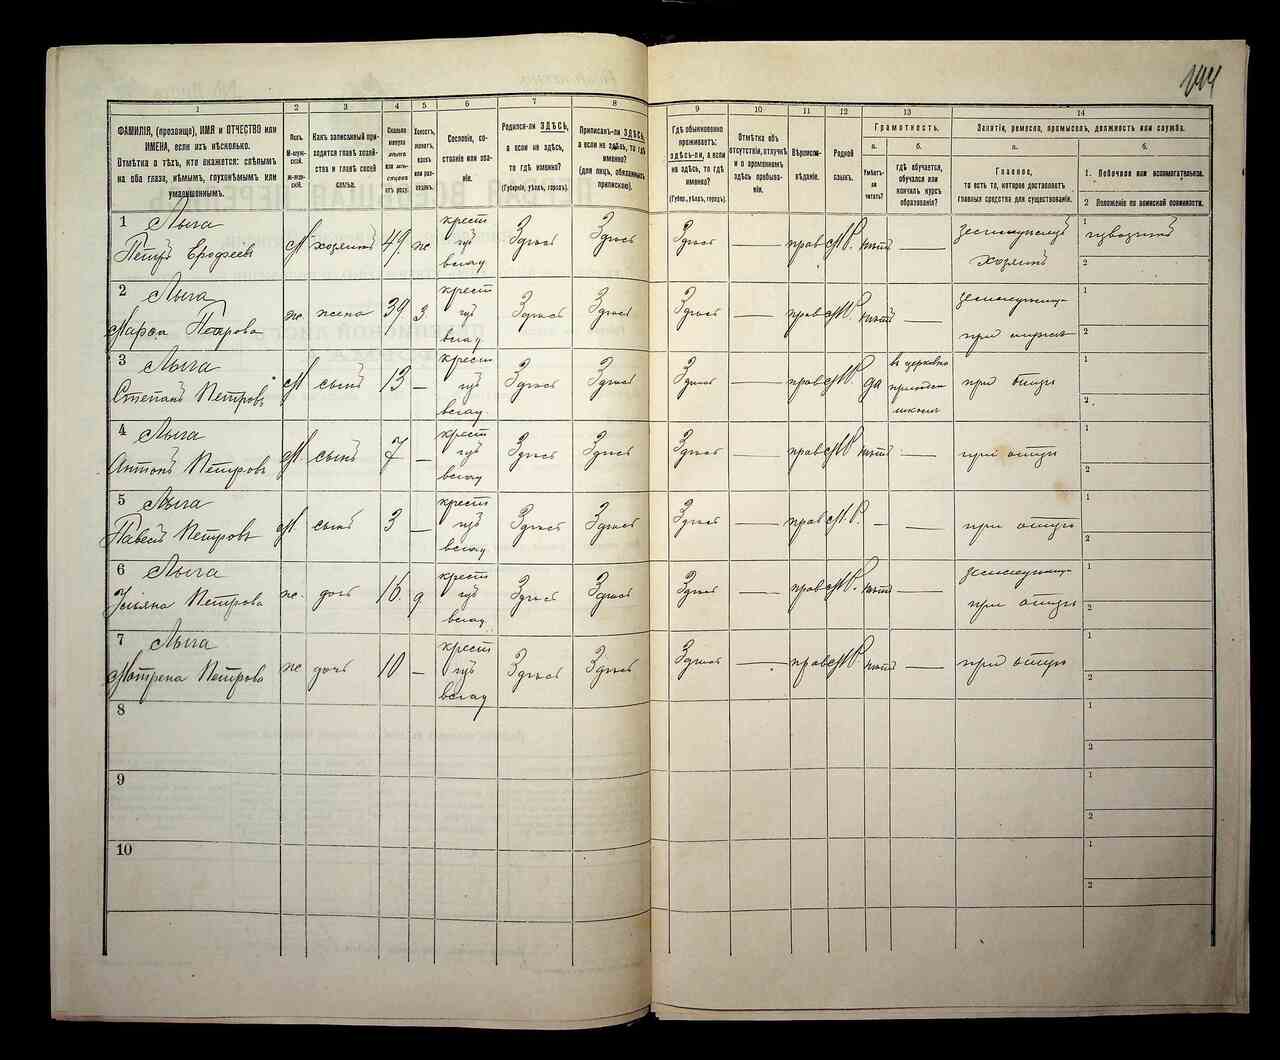 144
1 2 3 4 5 6 7 8 9 10 11 12 13 14
ФАМИЛІЯ, (прозвище), ИМЯ и ОТЧЕСТВО или
ИМЕНА, если ихъ нѣсколько.
Отмѣтка о тѣхъ, кто окажется: слѣпымъ
на оба глаза, нѣмымъ, глухонѣмымъ или
умалишеннымъ.
Полъ.
М-мужской.
Ж-женскій.
Какъ записанный при-
ходится главѣ хозяй-
ства и главѣ своей
семьи.
Сколько
минуло
лѣтъ
или мѣ-
сяцевъ
отъ роду.
Холостъ,
женатъ,
вдовъ
или раз-
веденъ.
Сословіе, со-
стояніе или зва-
ніе.
Родился-ли ЗДѢСЬ,
а если не здѣсь,
то гдѣ именно?
(Губернія, уѣздъ, городъ).
Приписанъ-ли ЗДѢСЬ,
а если не здѣсь, то гдѣ
именно?
(для лицъ, обязанныхъ
припискою).
Гдѣ обыкновенно
проживаетъ:
здѣсь-ли, а если
не здѣсь, то гдѣ
именно?
(Губер., уѣздъ, городъ).
Отмѣтка объ
отсутствіи, отлучкѣ
и о временномъ
здѣсь пребыва-
ніи.
Вѣроиспо-
вѣданіе.
Родной
языкъ.
Грамотность.
а. б.
Умѣетъ-
ли
читать?
гдѣ обучается,
обучался или
кончилъ курсъ
образованія?
Занятія, ремесло, промыселъ, должность или служба.
а. б.
Главное,
то есть то, которое доставляетъ
главныя средства для существованія.
1. Побочное или вспомогательное.
2 Положеніе по воинской повинности.
1 Лыга
Петръ Ерофеевъ М хозяинъ 49. ж крест Здѣсь Здѣсь Здѣсь — прав М.Р. нѣтъ —
хозяинъ
1
2
2 Лыга
Петрова ж. жена 39. З крест Здѣсь Здѣсь Здѣсь — прав М.Р. нѣтъ —
при мужѣ
1
2
3 Лыга
Степанъ Петровъ М сынъ 13 — крест Здѣсь Здѣсь Здѣсь — прав М.Р. да
въ церковно
приходск
школѣ
при отцѣ
1
2
4 Лыга
Антонъ Петровъ М. сынъ 7 — крест Здѣсь Здѣсь Здѣсь — прав М.Р. нѣтъ — при отцѣ
1
2
5 Лыга
Павелъ Петровъ М. сынъ 3 — крест Здѣсь Здѣсь Здѣсь — прав М.Р. — — при отцѣ
1
2
6 Лыга
Ульяна Петрова ж. дочь 16. д крест Здѣсь Здѣсь Здѣсь — прав М.Р. нѣтъ —
при отцѣ
1
2
7 Лыга
Мотрена Петрова ж дочь 10 — крест Здѣсь Здѣсь Здѣсь — прав М.Р. нѣтъ — при отцѣ
1
2
8
1
2
9
1
2
10
1
2